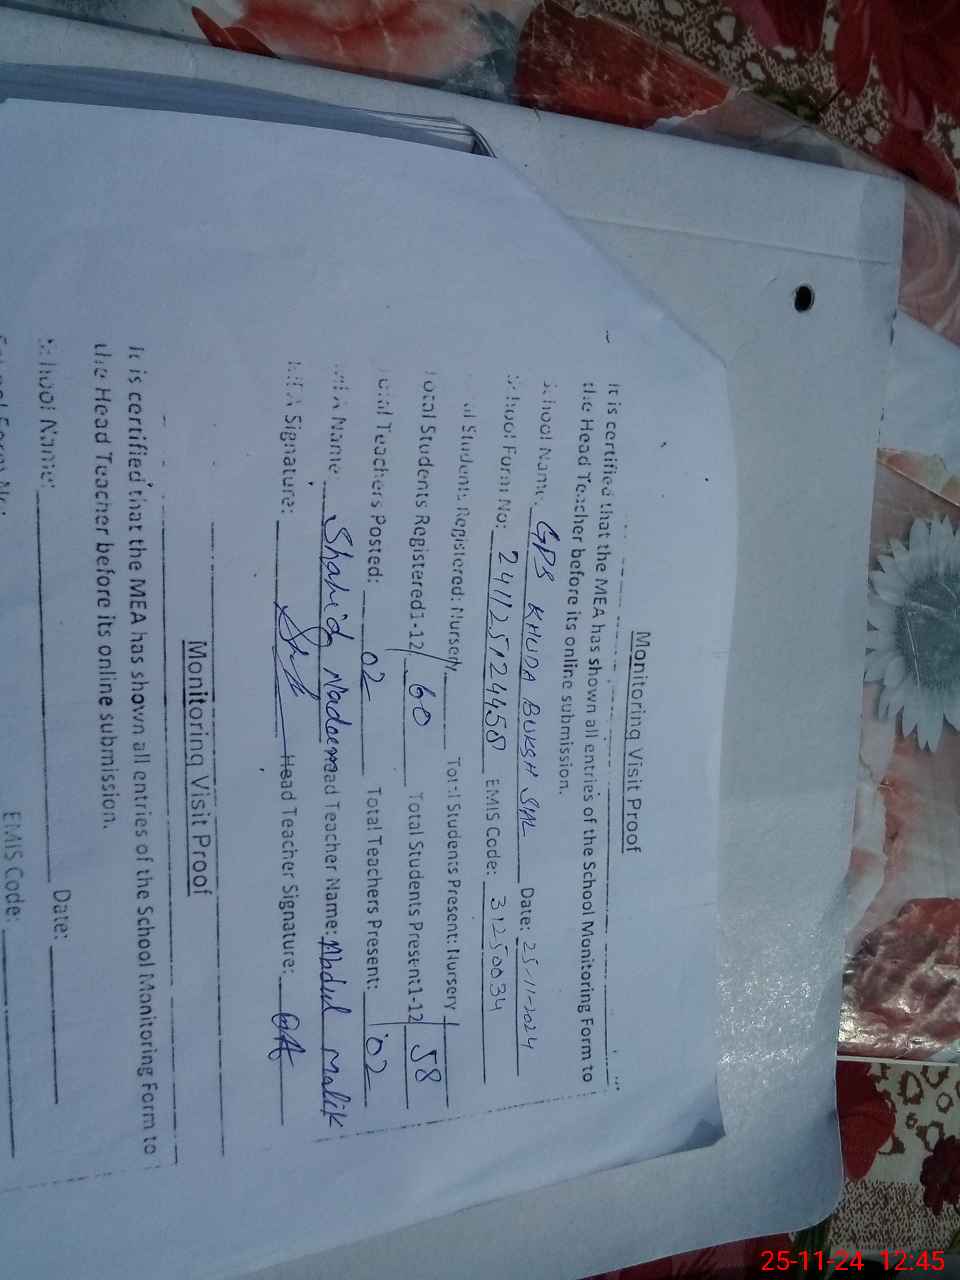 Monitoring Visit Proof
It is certified that the MEA has shown all entries of the School Monitoring Form to
the Head Teacher before its online submission.
School Name: GPS KHUDA BUKSH SIAL Date: 25-11-2024
School Form No: 241125124458 EMIS Code: 31250034
Students Registered: Nursery Total Students Present: Nursery
Total Students Registered1-12 60 Total Students Present1-12 58
Total Teachers Posted: 02 Total Teachers Present: 02
MEA Name: Shahid Nadeem Head Teacher Name: Abdul Malik
MEA Signature: Head Teacher Signature:
Monitoring Visit Proof
It is certified that the MEA has shown all entries of the School Monitoring Form to
the Head Teacher before its online submission.
School Name: Date:
EMIS Code:
25-11-24 12:45